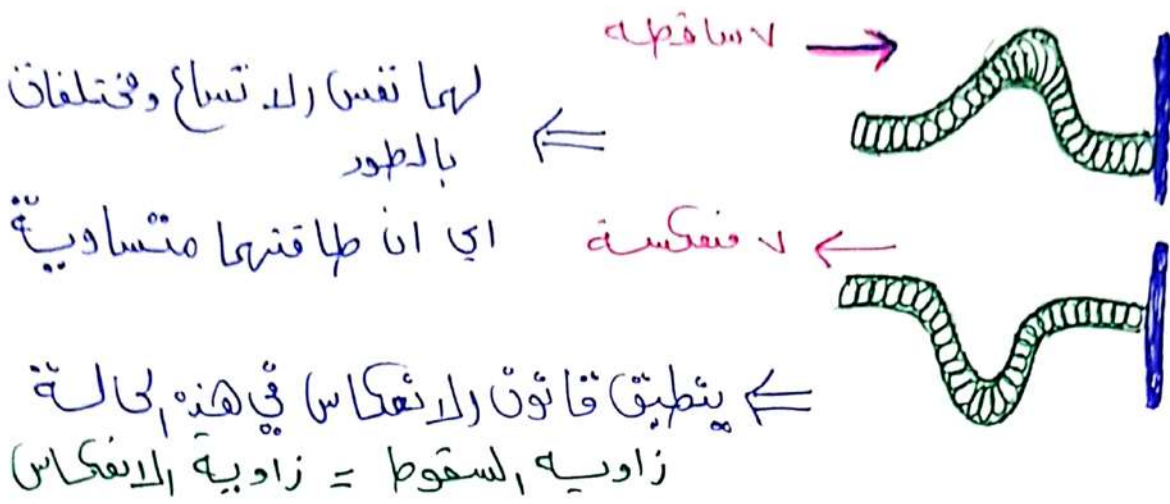 v ساقطه
لهما نفس الاتساع ومختلفان
بالطور
v منعكسة
اي ان طاقتهما متساوية
ينطبق قانون الانعكاس في هذه الحالة
زاويه السقوط = زاوية الانعكاس